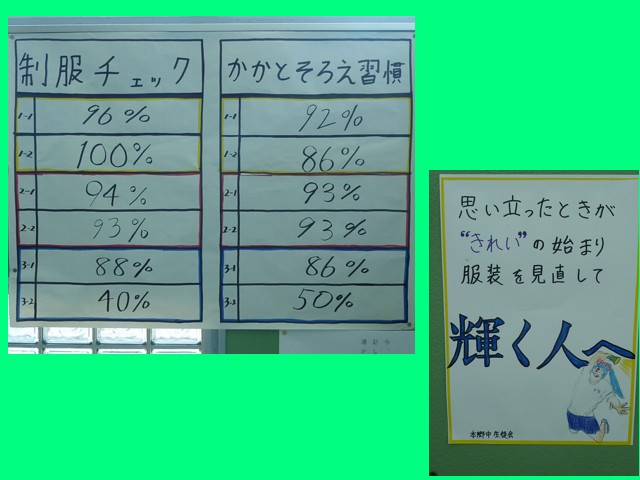 制服チェック
1-1 96%
1-2 100%
2-1 94%
2-2 93%
3-1 88%
3-2 40%
かかとそろえ習慣
1-1 92%
1-2 86%
2-1 93%
2-2 93%
3-1 86%
3-2 50%
思い立ったときが
"きれい"の始まり
服装を見直して
輝く人へ
本郷中生徒会